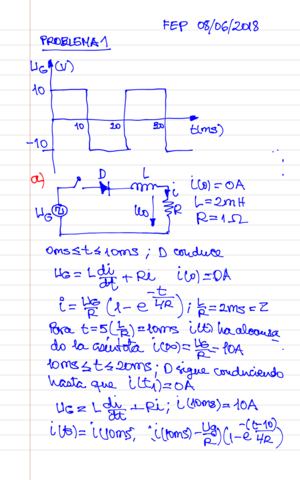 FEP 08/06/2018
PROBLEMA 1
UG (V)
10
10 20 30
t(ms)
-10
a)
D L
i
i(0)=0A
L=2mH
R=1Ω
UG
R
0ms≤t≤10ms ; D conduce
UG = L di/dt + Ri i(0)=0A
i = UG/R (1-e^(-t/(L/R)) ; L/R = 2ms = Z
Para t=5(L/R)=10ms i(t) ha alcanza
do la asíntota i(∞)=UG/R=10A
10ms≤t≤20ms; D sigue conduciendo
hasta que i(t1)=0A
UG = L di/dt + Ri ; i(10ms)=10A
i(t)= i(10ms) (i(10ms)-UG/R)(1-e^(-(t-10)/(L/R))